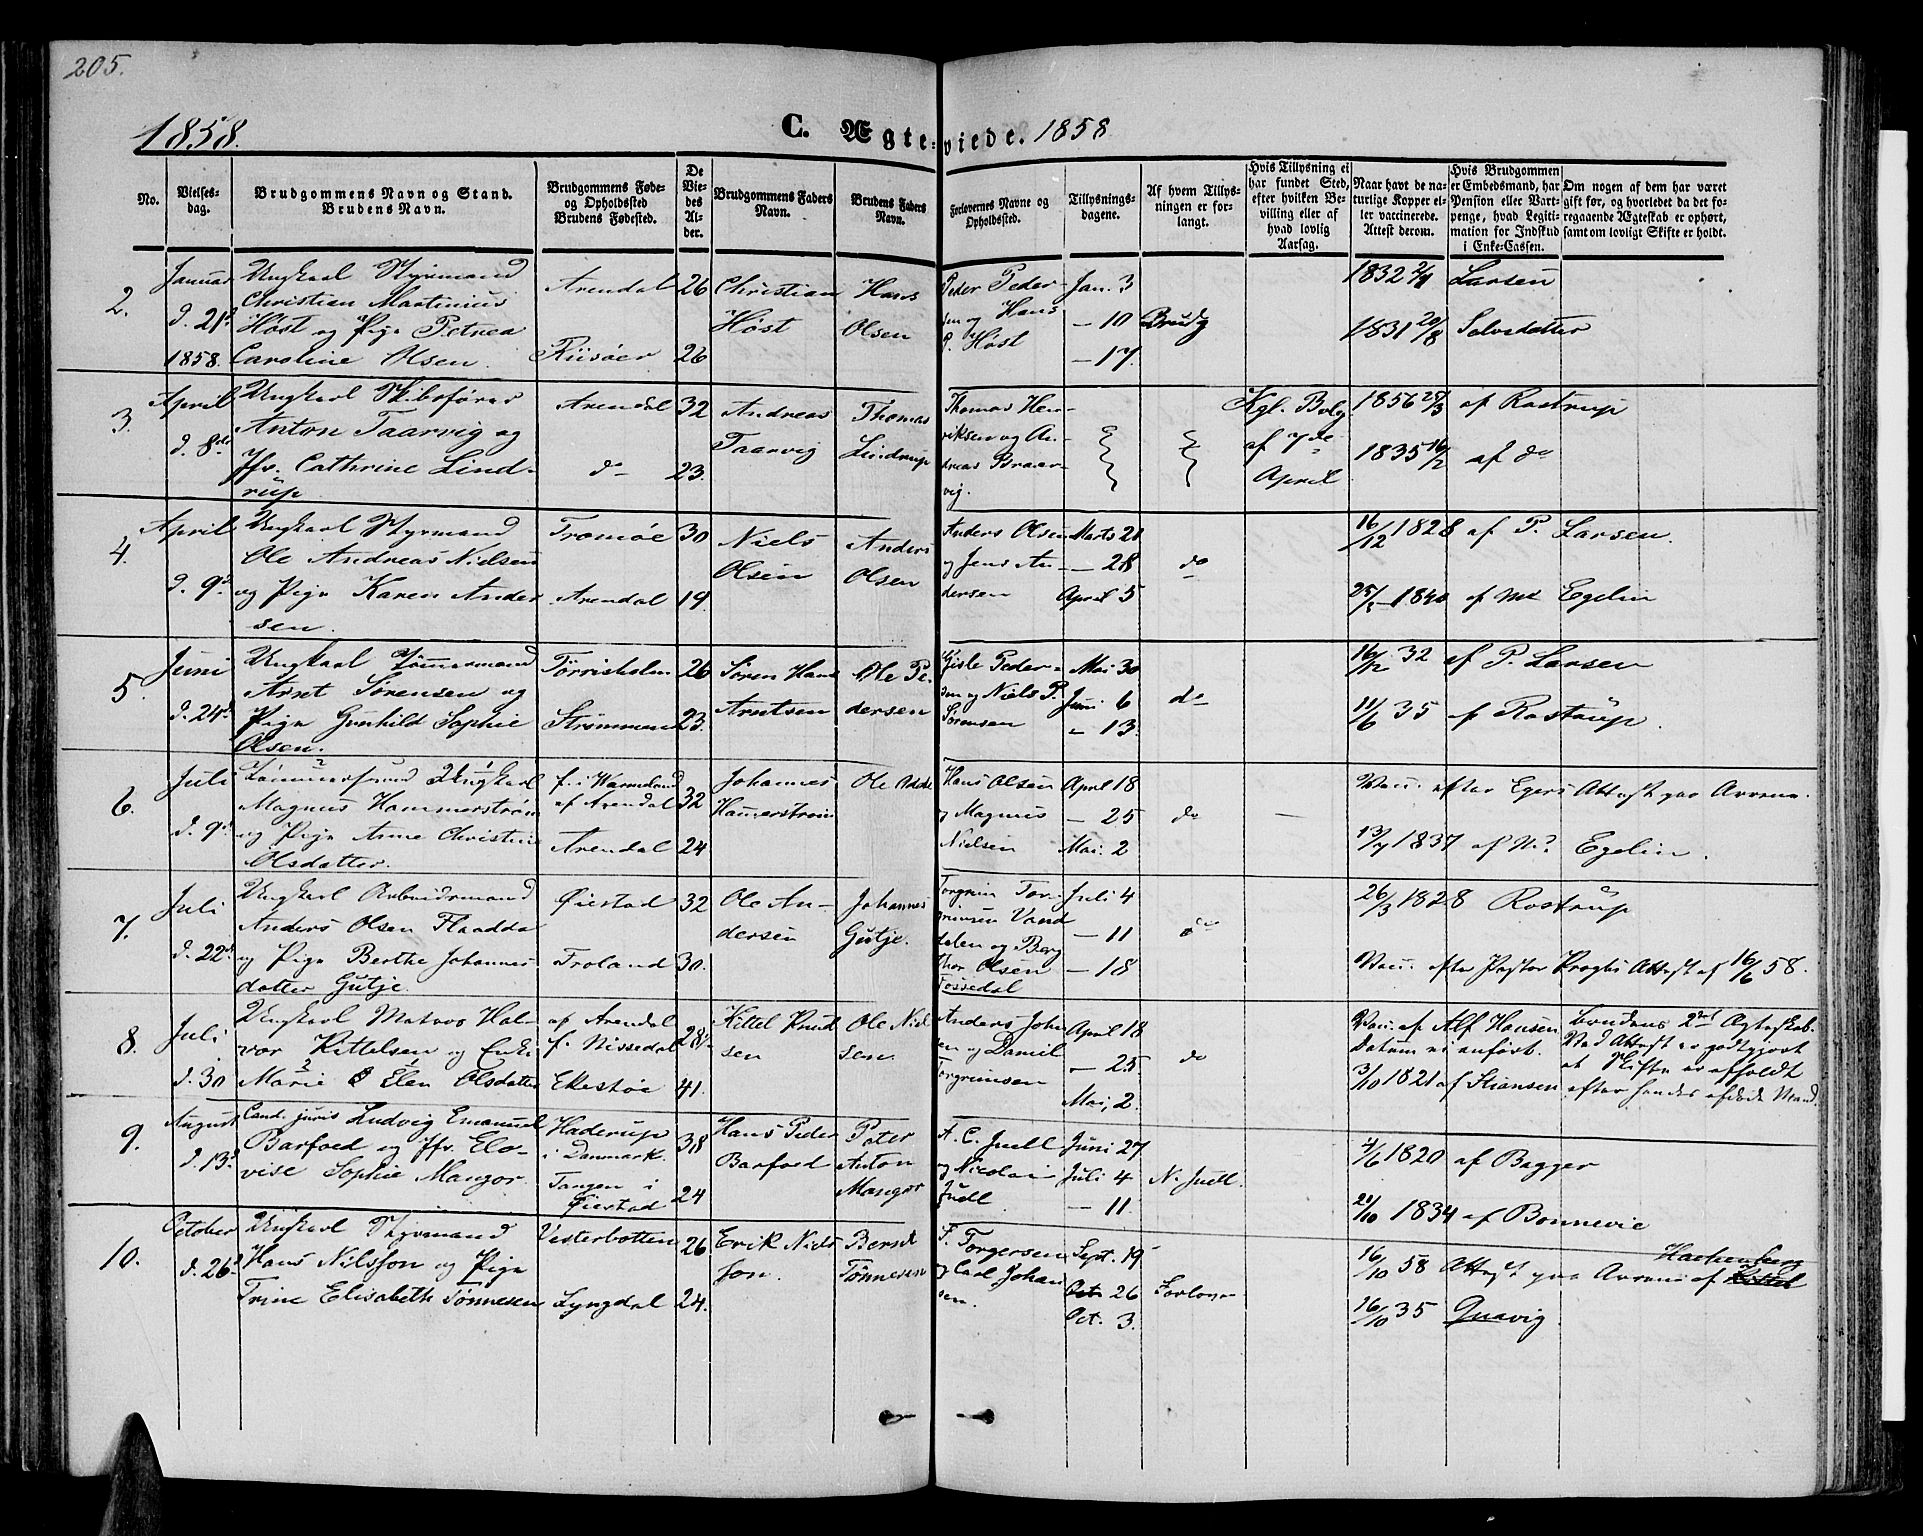 205.
1858.
C. Ægteviede. 1858
No.
Vielsesdag.
Brudgommens Navn og Stand. Brudens Navn.
Brudgommens Føde- og Opholdsted Brudens Fødested.
De Viedes Alder.
Brudgommens Faders Navn.
Brudens Faders Navn.
Forlovernes Navne og Opholdsted.
Tillysningsdagene.
Af hvem Tillysningen er forlangt.
Hvis Tillysning ei har fundet Sted, efter hvilken Bevilling eller af hvad lovlig Aarsag.
Naar havt de naturlige Kopper eller vaccinerede. Attest derom.
Hvis Brudgommen er Embedsmand, har Pension eller Vartpenge, hvad Legitimation for Indskud i Enke-Cassen.
Om nogen af dem har været gift før, og hvorledet da det foregaaende Ægteskab er ophørt, samt om lovligt Skifte er holdt.
2.
Januar d. 21d 1858.
Ungkarl Styrmand
Christian Martinius
Høst og Pige Petrea
Caroline Olsen.
Arendal 26
Riisøer 26
Christian Høst
Hans Olsen
Peder Pedersen og Hans P. Høst
Jan. 3
— 10
— 17.
Brudg
1832 Larsen
1831 20/8
3.
April d. 8de
Ungkarl Skibsfører
Anton Taarvig og
Jfr. Cathrine Lind-
rup
Arendal 32
do 23.
Andreas Taarvig
Thomas Lindrup
Thomas Henriksen og Andreas Braarvig.
Kgl. Bvlg af 7de April
1856 25/3 af Rostrup
1835 16/2 af do
4.
April d. 9d
Ungkarl Styrmand
Ole Andreas Nielsen
og Pige Karen Ander
sen.
Tromøe 30
Arendal 19.
Niels Olsen
Anders Olsen
Anders Olsen og Jens Andersen
Marts 21
— 28
April 5
do
16/12 1828 af P. Larsen.
1840 af Egelin
5.
Juni d. 24d
Ungkarl Tømmermand
Arnt Sørensen og
Pige Gunhild Sophie
Olsen.
Tørrisholm 26
Strømmen 23.
Søren Hans Arntsen
Ole Pedersen
Gisle Pedersen og Niels P. Sørensen
Mai 30
Juni 6
" 13.
do
16/12 32 af P. Larsen
11/6 35 af Rostrup.
6.
Juli d. 9d
Ungkarl
Magnus Hammerstrøm
og Pige Anne Christine
Olsdatter.
f. i Warmland af Arendal 32
Arendal 24
Johannes Hammerstrøm
Ole
Hans Olsen og Magnus Nielsen
April 18
— 25
Mai. 2
do
—
Vacc. efter Egers Attest
13/7 1837 af Egelin.
7.
Juli d. 22d
Ungkarl Arbeidsmand
Anders Olsen Fladda
og Pige Berthe Johannes
datter Gutje.
Øiestad 32
Froland 30.
Ole Andersen
Johannes Gutje.
Torgrim Torgrimsen Vanddalen og Berg Thor Olsen Tossedal
Juli 4
— 11
— 18
do
26/3 1828 Rostrup
Vacc. efter Pastor Attest af 16/6 58.
8.
Juli d. 30
Ungkarl Matros Hal-
vor Kittelsen og Enke
Marie Elen Olsdatter
af Arendal f. Nissedal 28
Ekestøe 41.
Kittel Knudsen
Ole Nielsen
Anders Johnsen og Daniel Torgrimsen
April 18
— 25
Mai, 2.
do
Vacc. af Alf Hansen
Datum ei anført.
3/10 1821 af Stiansen
Brudens 2det Ægteskab.
Ved Attest er godtgjort
at Skifte er afholdt
efter hendes afdøde Mand.
9.
August d. 13d
Cand. juris Ludvig Emanuel
Barfoed og Jfr. Elo-
vise Sophie Mangor
Haderup i Danmark. 38
Tangen i Øiestad 24
Hans Peder Barfoed
Peter Anton Mangor
A. C. Juell og Nicolai Juell
Juni 27
Juli 4
— 11
N. Juell.
1820 af Bagger
1834 af Bonnevie
10.
October d. 26d
Ungkarl Styrmand
Hans Nilsson og Pige
Trine Elisabeth Tønnesen
Vesterbotten 26
Lyngdal 24.
Erik Nilsson.
Berndt Tønnesen
F. Torgersen og Carl Johansen.
Sept. 19
Oct 26
Oct. 3.
Forlover
16/10 58 Attest
16/10 35